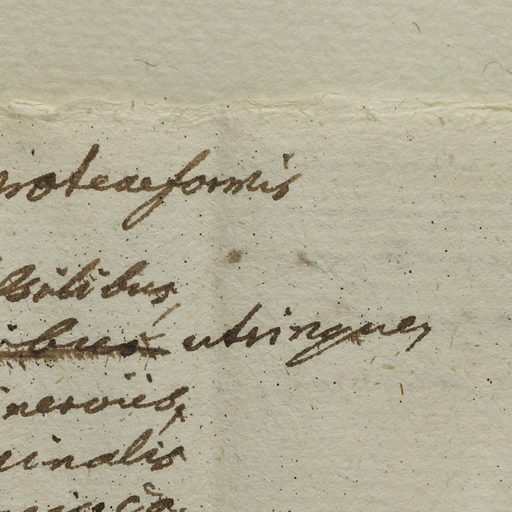 proteaeformis
ssilibus,
ibus utrinque,
inerviis,
ginalis